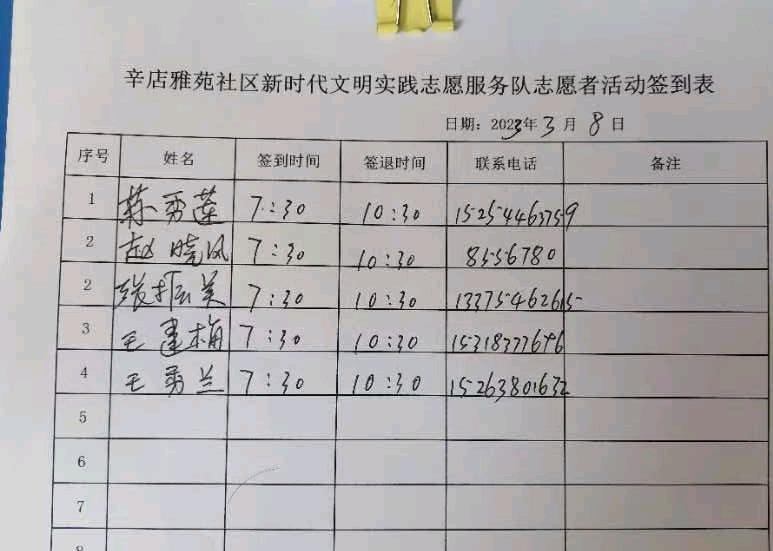 辛店雅苑社区新时代文明实践志愿服务队志愿者活动签到表
日期：2023年3月8日
序号 姓名 签到时间 签退时间 联系电话 备注
1 苏秀莲 7:30 10:30 15254463759
2 赵晓凤 7:30 10:30 8556780
2 张振美 7:30 10:30 13375462615
3 王建梅 7:30 10:30
4 王秀兰 7:30 10:30 15263801632
5
6
7
8